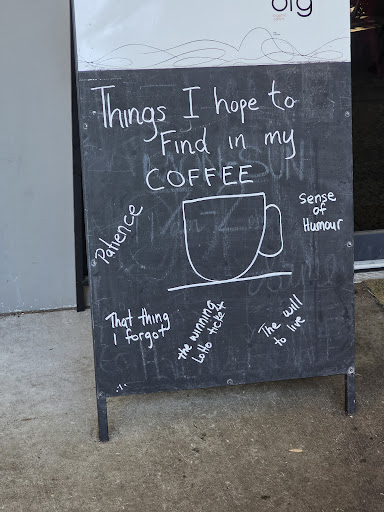 Things I hope to
Find in my
COFFEE
Patience
sense
of
Humour
That thing
I forgot
the winning
Lotto ticket
The will
to live